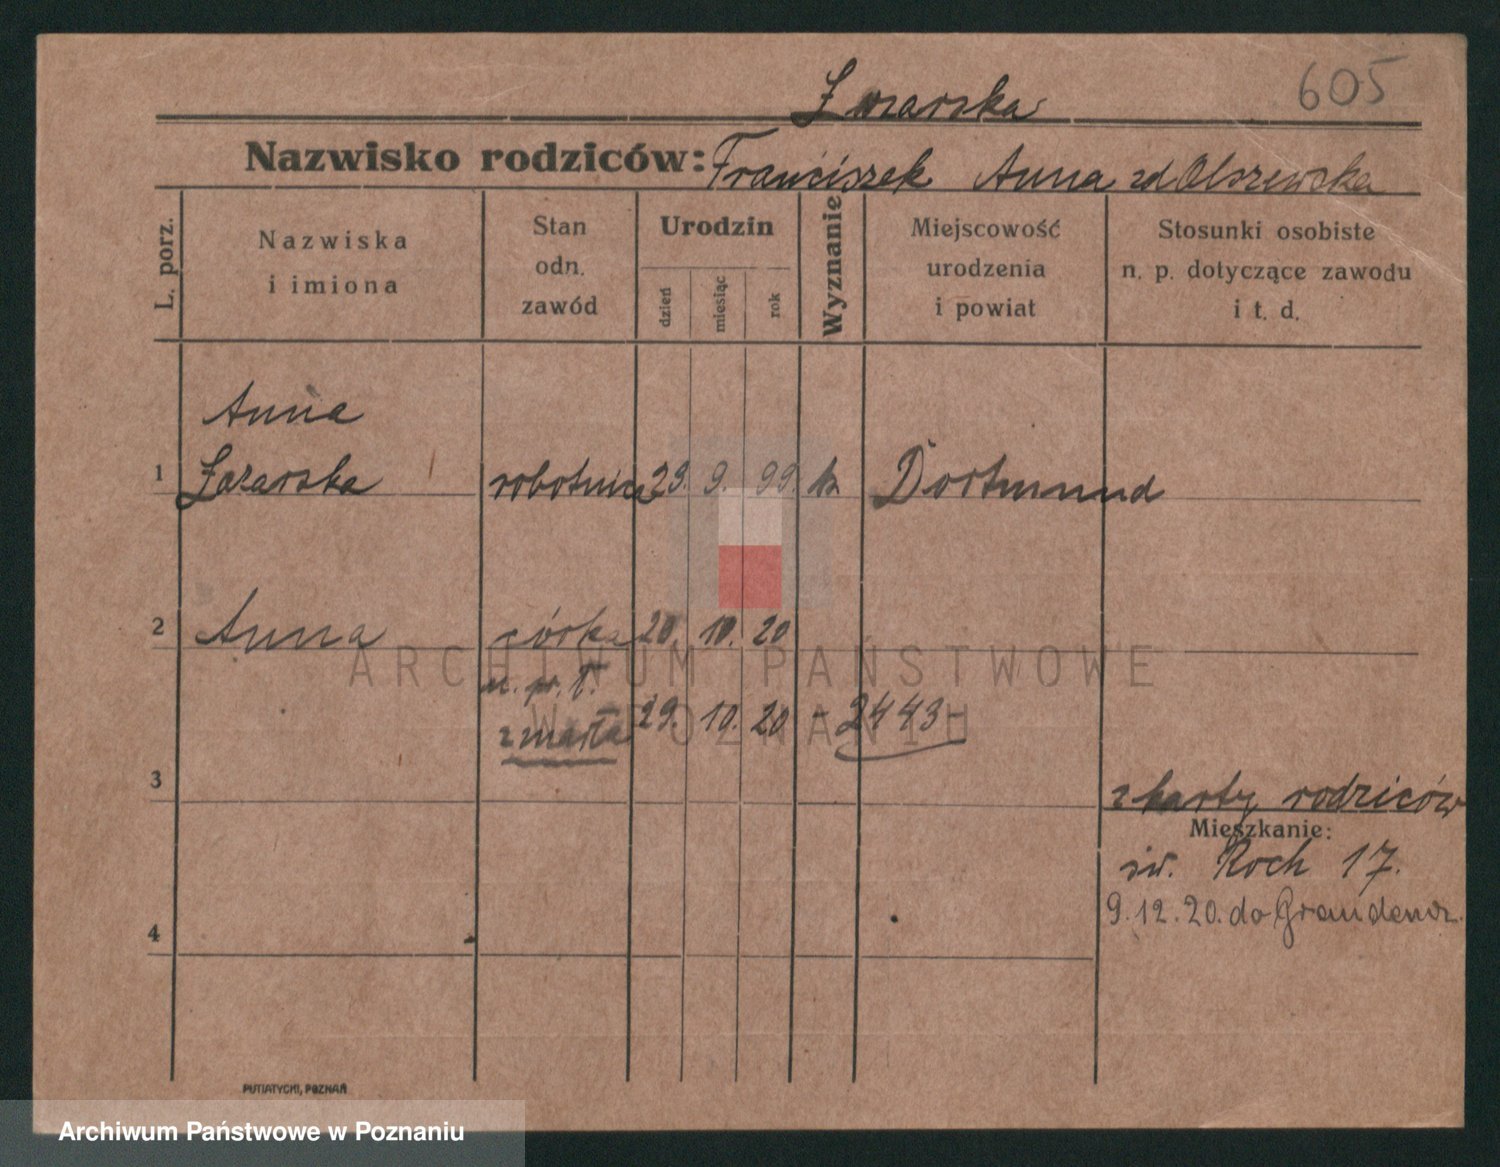 605
Nazwisko rodziców: Franciszek Anna zd Olszewska
L. porz.
Nazwiska
i imiona
Stan
odn.
zawód
Urodzin
dzień
miesiąc
rok
Wyznanie
Miejscowość
urodzenia
i powiat
Stosunki osobiste
n. p. dotyczące zawodu
i t. d.
Anna
1 robotnica 29. 9. 99. k Dortmund
2 Anna córka 20. 10. 20
ARCHIWUM PAŃSTWOWE
W POZNANIU
zmarła 29. 10. 20 - 2443-
3
z karty rodziców
Mieszkanie:
św. Roch 17.
9.12.20. do Graudenz.
4
PUTIATYCKI, POZNAŃ
Archiwum Państwowe w Poznaniu